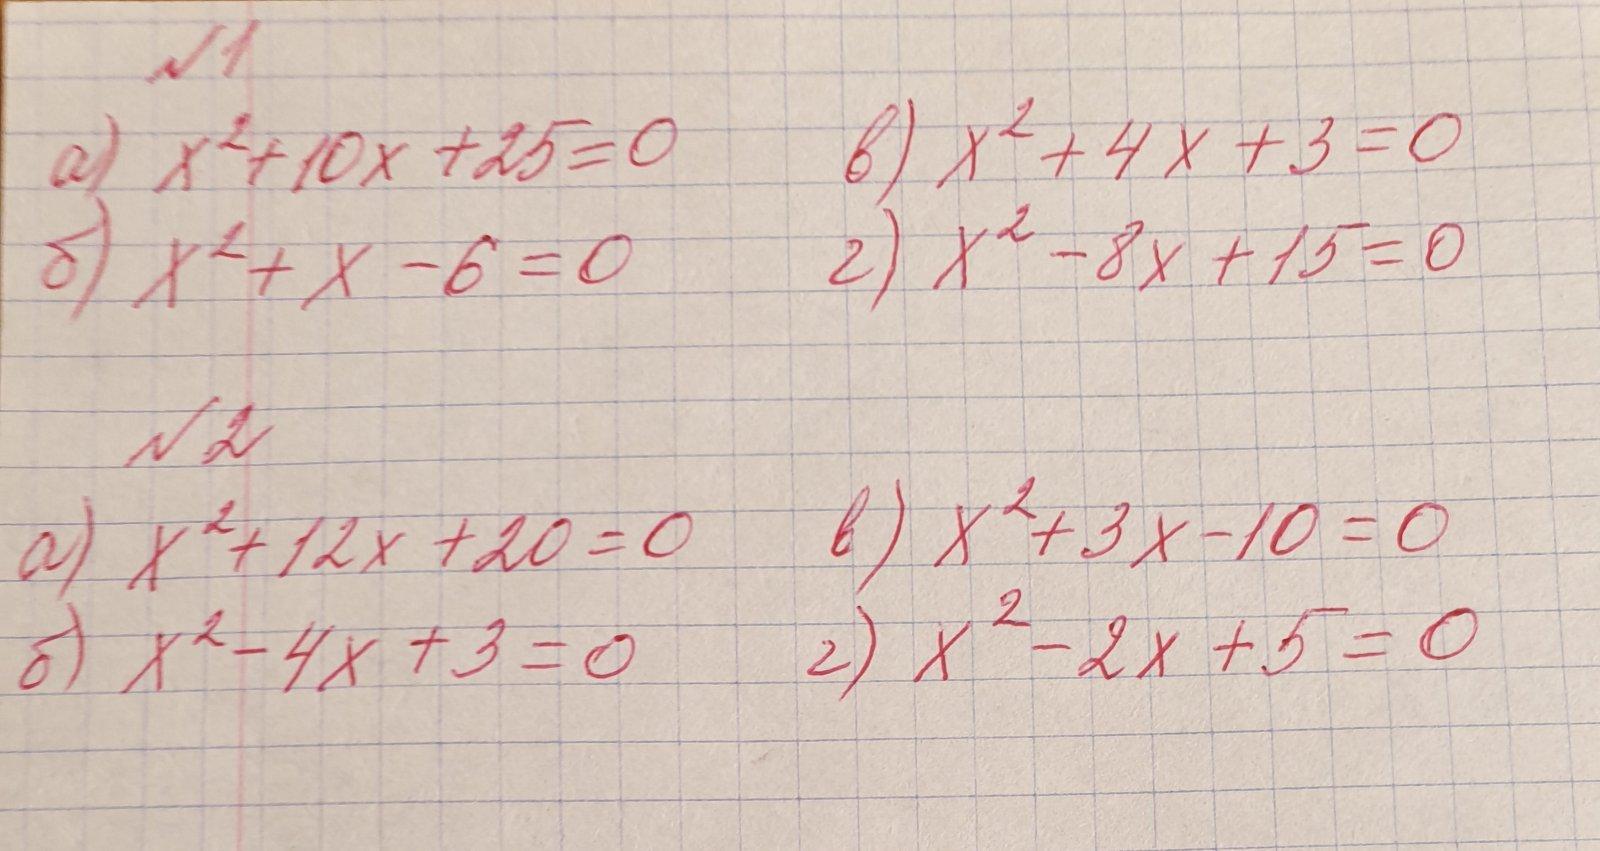 №1
а) x²+10x+25=0
б) x²+x-6=0
в) x²+4x+3=0
г) x²-8x+15=0
№2
а) x²+12x+20=0
б) x²-4x+3=0
в) x²+3x-10=0
г) x²-2x+5=0